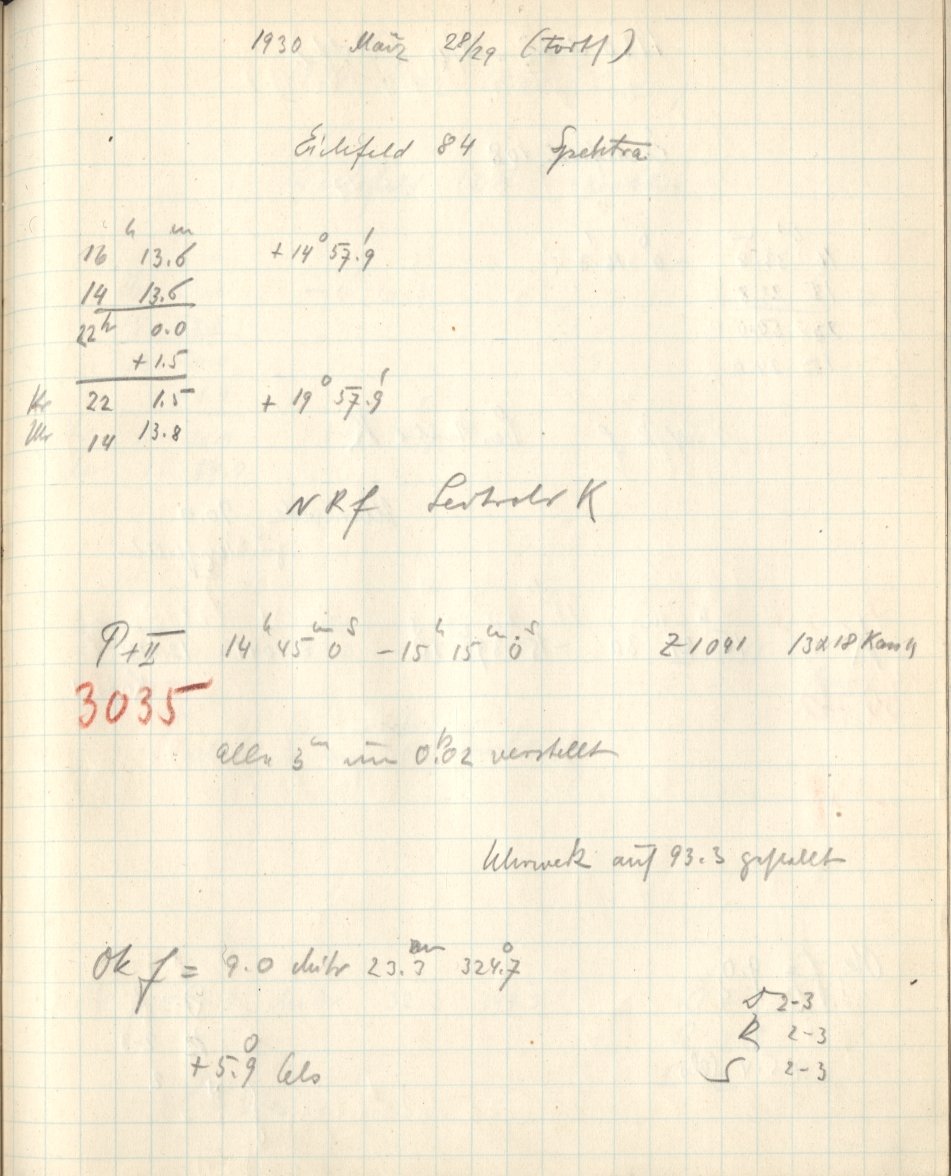 1930 März 28/29 (Forts)
Eichfeld 84 Spektra
h m
16 13.6 + 14° 57.'9
14 13.6
22h 0.0
+ 1.5
Kr 22 1.5 + 19° 57.'9
Uhr 14 13.8
NRf Leitrohr K
P+II 14h 45m 0s - 15h 15m 0s Z 1041
3035
alle 3m um 0.02 verstellt
Uhrwerk auf 93.3 gestellt
Ok f = 9.0 Mitr 23.3 324.°7
2-3
R 2-3
+5.°9 Cels S 2-3